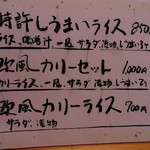 時許しうまいライス 850
ライス、一品、サラダ、漬物、しうまい3ケ
欧風 カリーセット 1,000円
カリーライス、一品、サラダ、漬物、しうまい
欧風 カリーライス 700円
サラダ、漬物